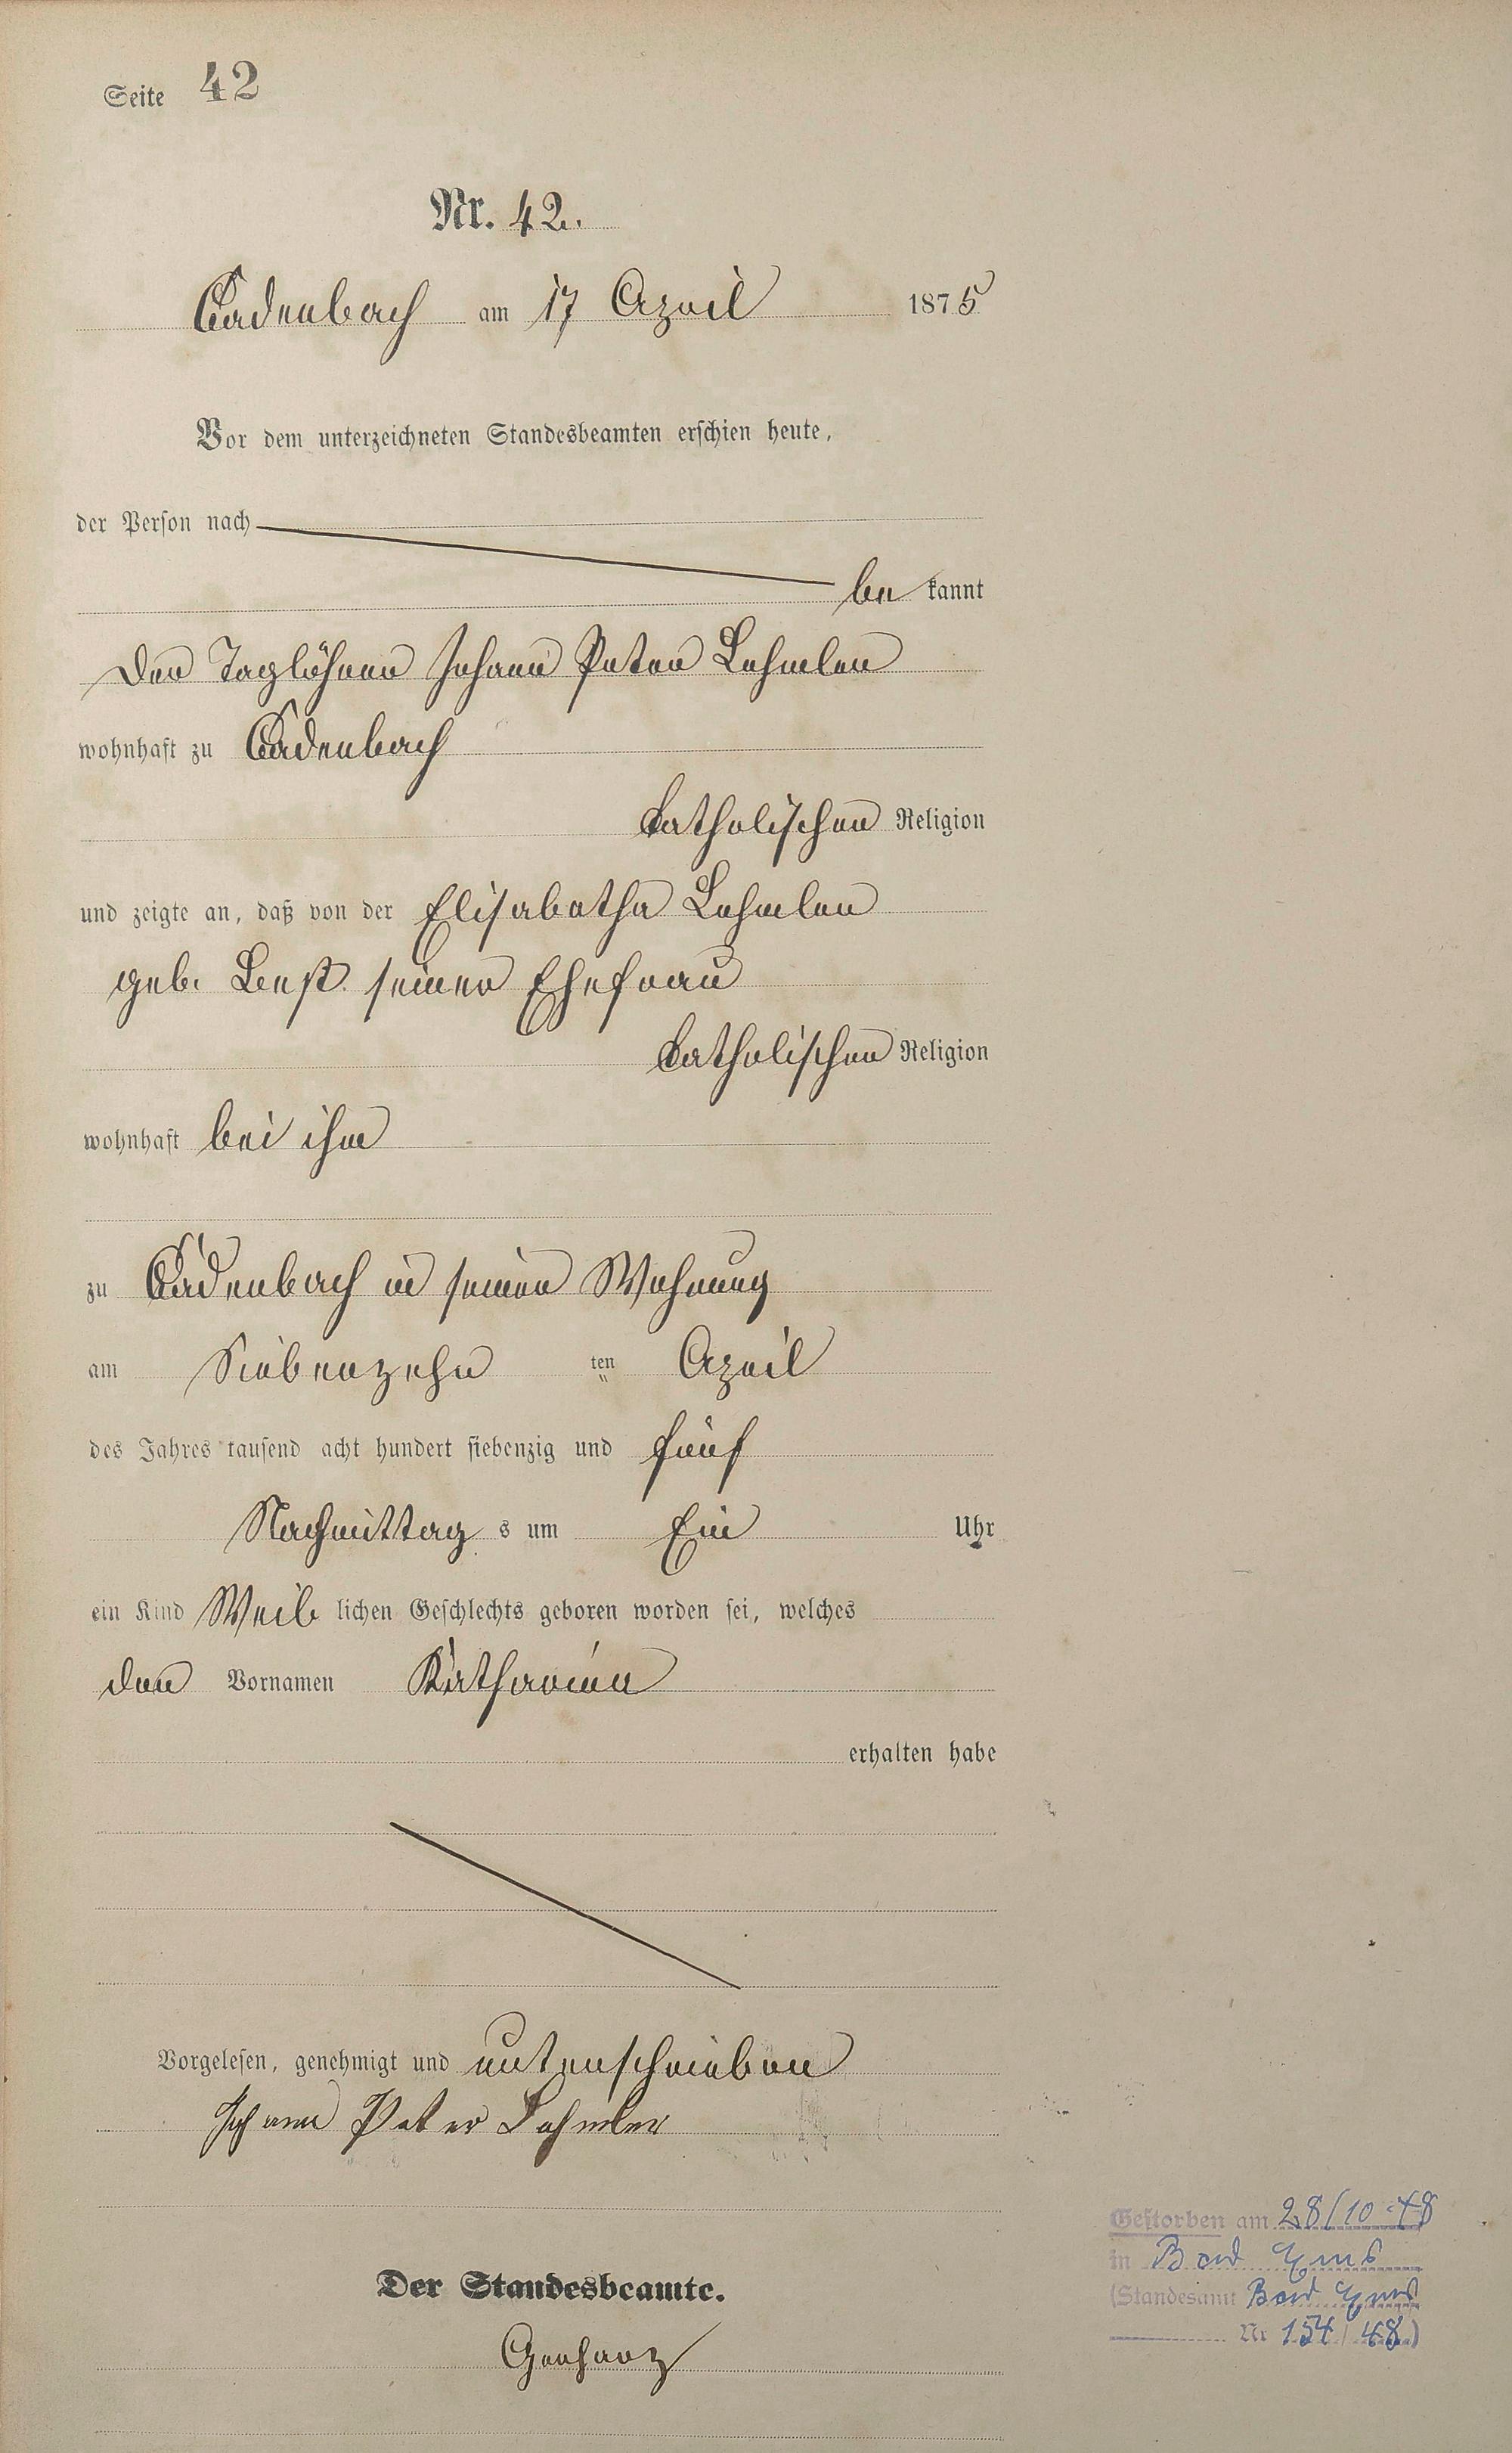 Seite 42
Nr. 42.
Cadenbach am 17 April 1875
Vor dem unterzeichneten Standesbeamten erschien heute,
der Person nach
be kannt
Der Taglöhner Johann Peter Lehmler
wohnhaft zu Cadenbach
katholischer Religion
und zeigte an, daß von der Elisabetha Lehmler
geb. seiner Ehefrau
katholischer Religion
wohnhaft bei ihm
zu Cadenbach in seiner Wohnung
am Siebenzehn ten April
des Jahres tausend acht hundert siebenzig und fünf
Nachmittag s um Ein Uhr
ein Kind Weib lichen Geschlechts geboren worden sei, welches
den Vornamen Katharina
erhalten habe
Vorgelesen, genehmigt und unterschrieben
Johann Peter Lehmler
Der Standesbeamte.
Gerharz
Gestorben am 28/10 48
in Bad Ems
(Standesamt Bad Ems
Nr 154/48)